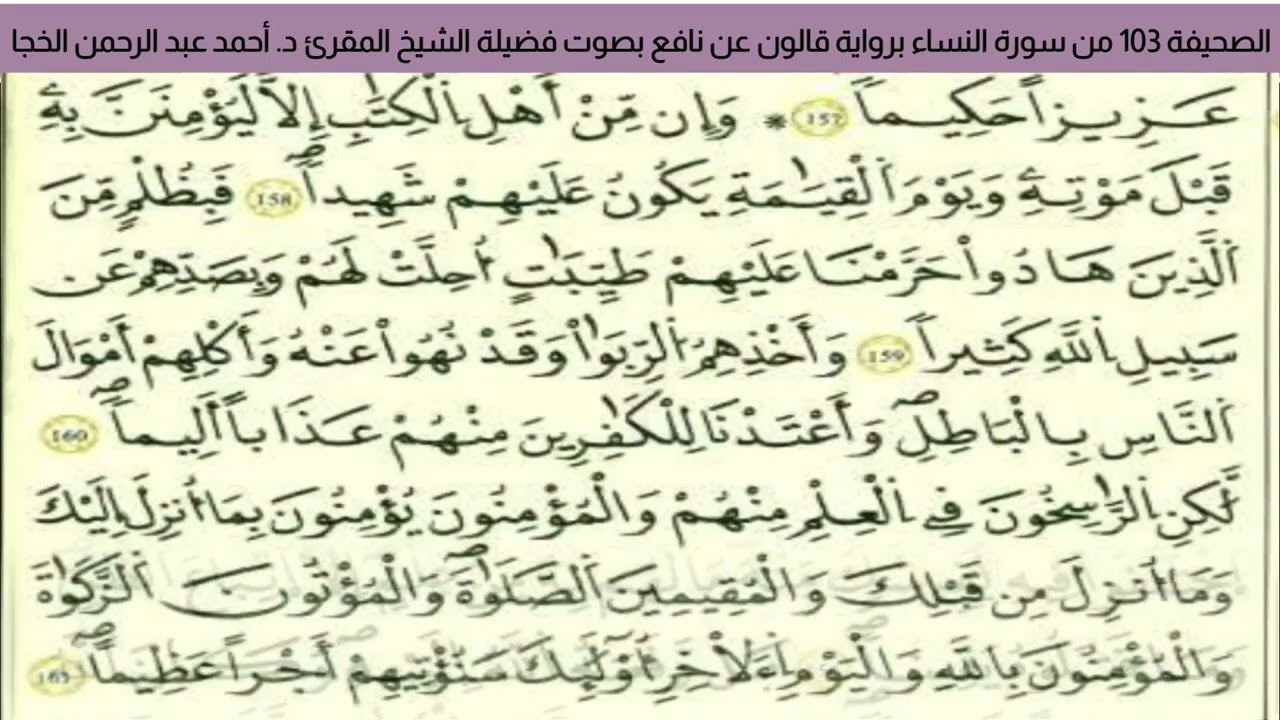 الصحيفة 103 من سورة النساء برواية قالون عن نافع بصوت فضيلة الشيخ المقرئ د. أحمد عبد الرحمن الخجا
عَزِيزاً حَكِيماً 157 * وَإِن مِّنْ أَهْلِ اِ۬لْكِتَٰبِ إِلَّا لَيُؤْمِنَنَّ بِهِۦ
قَبْلَ مَوْتِهِۦ وَيَوْمَ اَ۬لْقِيَٰمَةِ يَكُونُ عَلَيْهِمْ شَهِيداًۖ 158 فَبِظُلْمٍ مِّنَ
اَ۬لَّذِينَ هَادُواْ حَرَّمْنَا عَلَيْهِمْ طَيِّبَٰتٍ اُحِلَّتْ لَهُمْ وَبِصَدِّهِمْ عَن
سَبِيلِ اِ۬للَّهِ كَثِيراً 159 وَأَخْذِهِمُ اُ۬لرِّبَوٰاْ وَقَدْ نُهُواْ عَنْهُ وَأَكْلِهِمْ أَمْوَٰلَ
اَ۬لنَّاسِ بِالْبَٰطِلِۖ وَأَعْتَدْنَا لِلْكَٰفِرِينَ مِنْهُمْ عَذَاباً أَلِيماًۖ 160
لَّٰكِنِ اِ۬لرَّٰسِخُونَ فِے اِ۬لْعِلْمِ مِنْهُمْ وَالْمُؤْمِنُونَ يُؤْمِنُونَ بِمَا أُنزِلَ إِلَيْكَ
وَمَا أُنزِلَ مِن قَبْلِكَ وَالْمُقِيمِينَ اَ۬لصَّلَوٰةَۖ وَالْمُؤْتُونَ اَ۬لزَّكَوٰةَ
وَالْمُؤْمِنُونَ بِاللَّهِ وَالْيَوْمِ اِ۬ءَلَاخِرِ أُوْلَٰٓئِكَ سَنُؤْتِيهِمْ أَجْراً عَظِيماًۖ